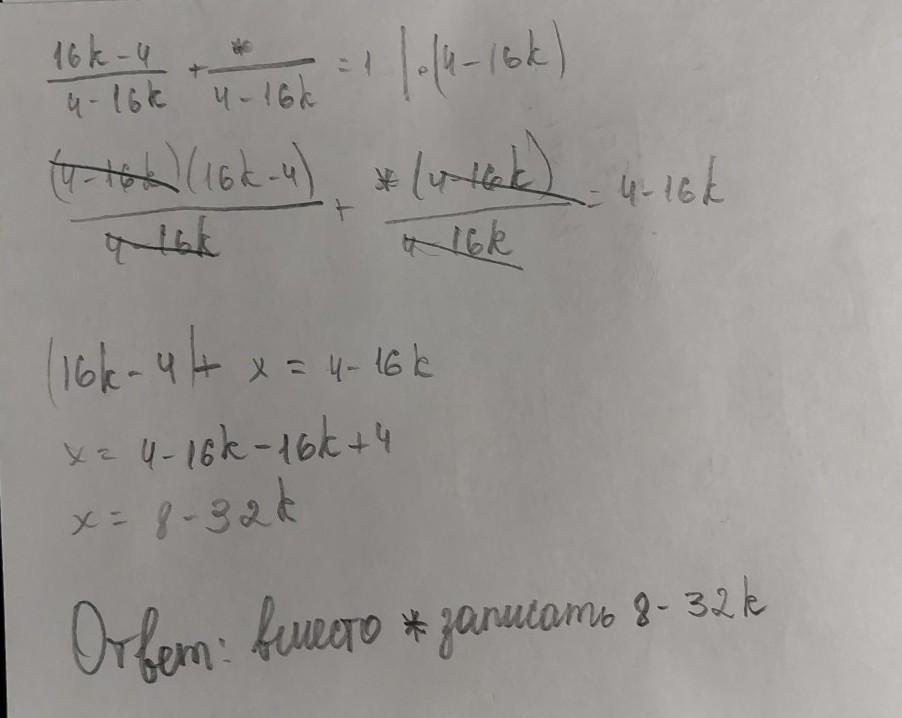 16k-4/4-16k + */4-16k = 1 | ·(4-16k)
(4-16k)(16k-4)/4-16k + *(4-16k)/4-16k = 4-16k
(16k-4)+ x = 4-16k
x = 4-16k-16k+4
x = 8-32k
Ответ: вместо * записать 8-32k